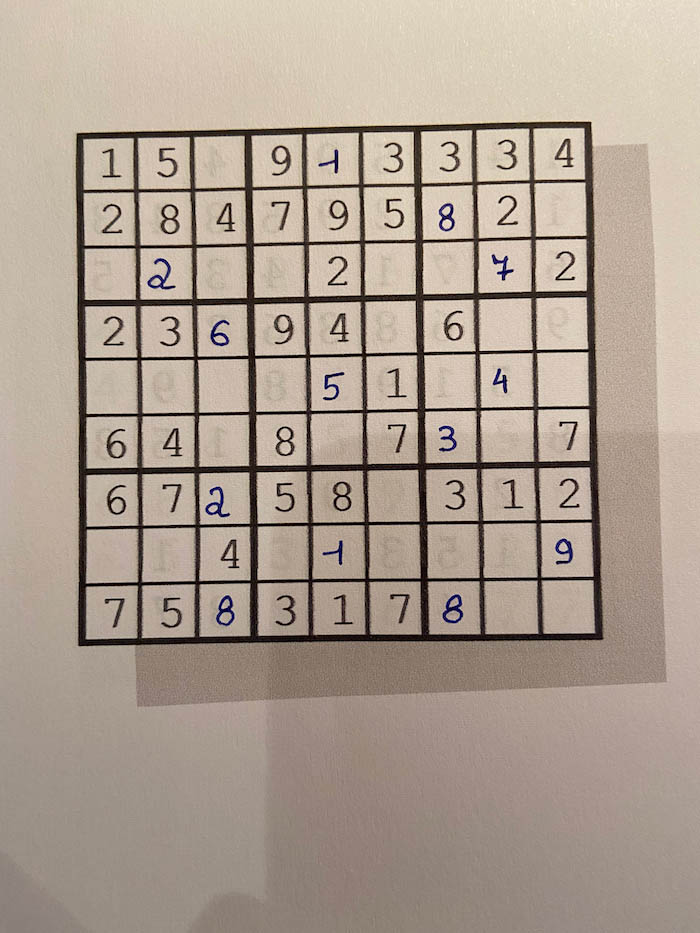 1 5 9 1 3 3 3 4
2 8 4 7 9 5 8 2
2 2 7 2
2 3 6 9 4 6
5 1 4
6 4 8 7 3 7
6 7 2 5 8 3 1 2
4 1 9
7 5 8 3 1 7 8